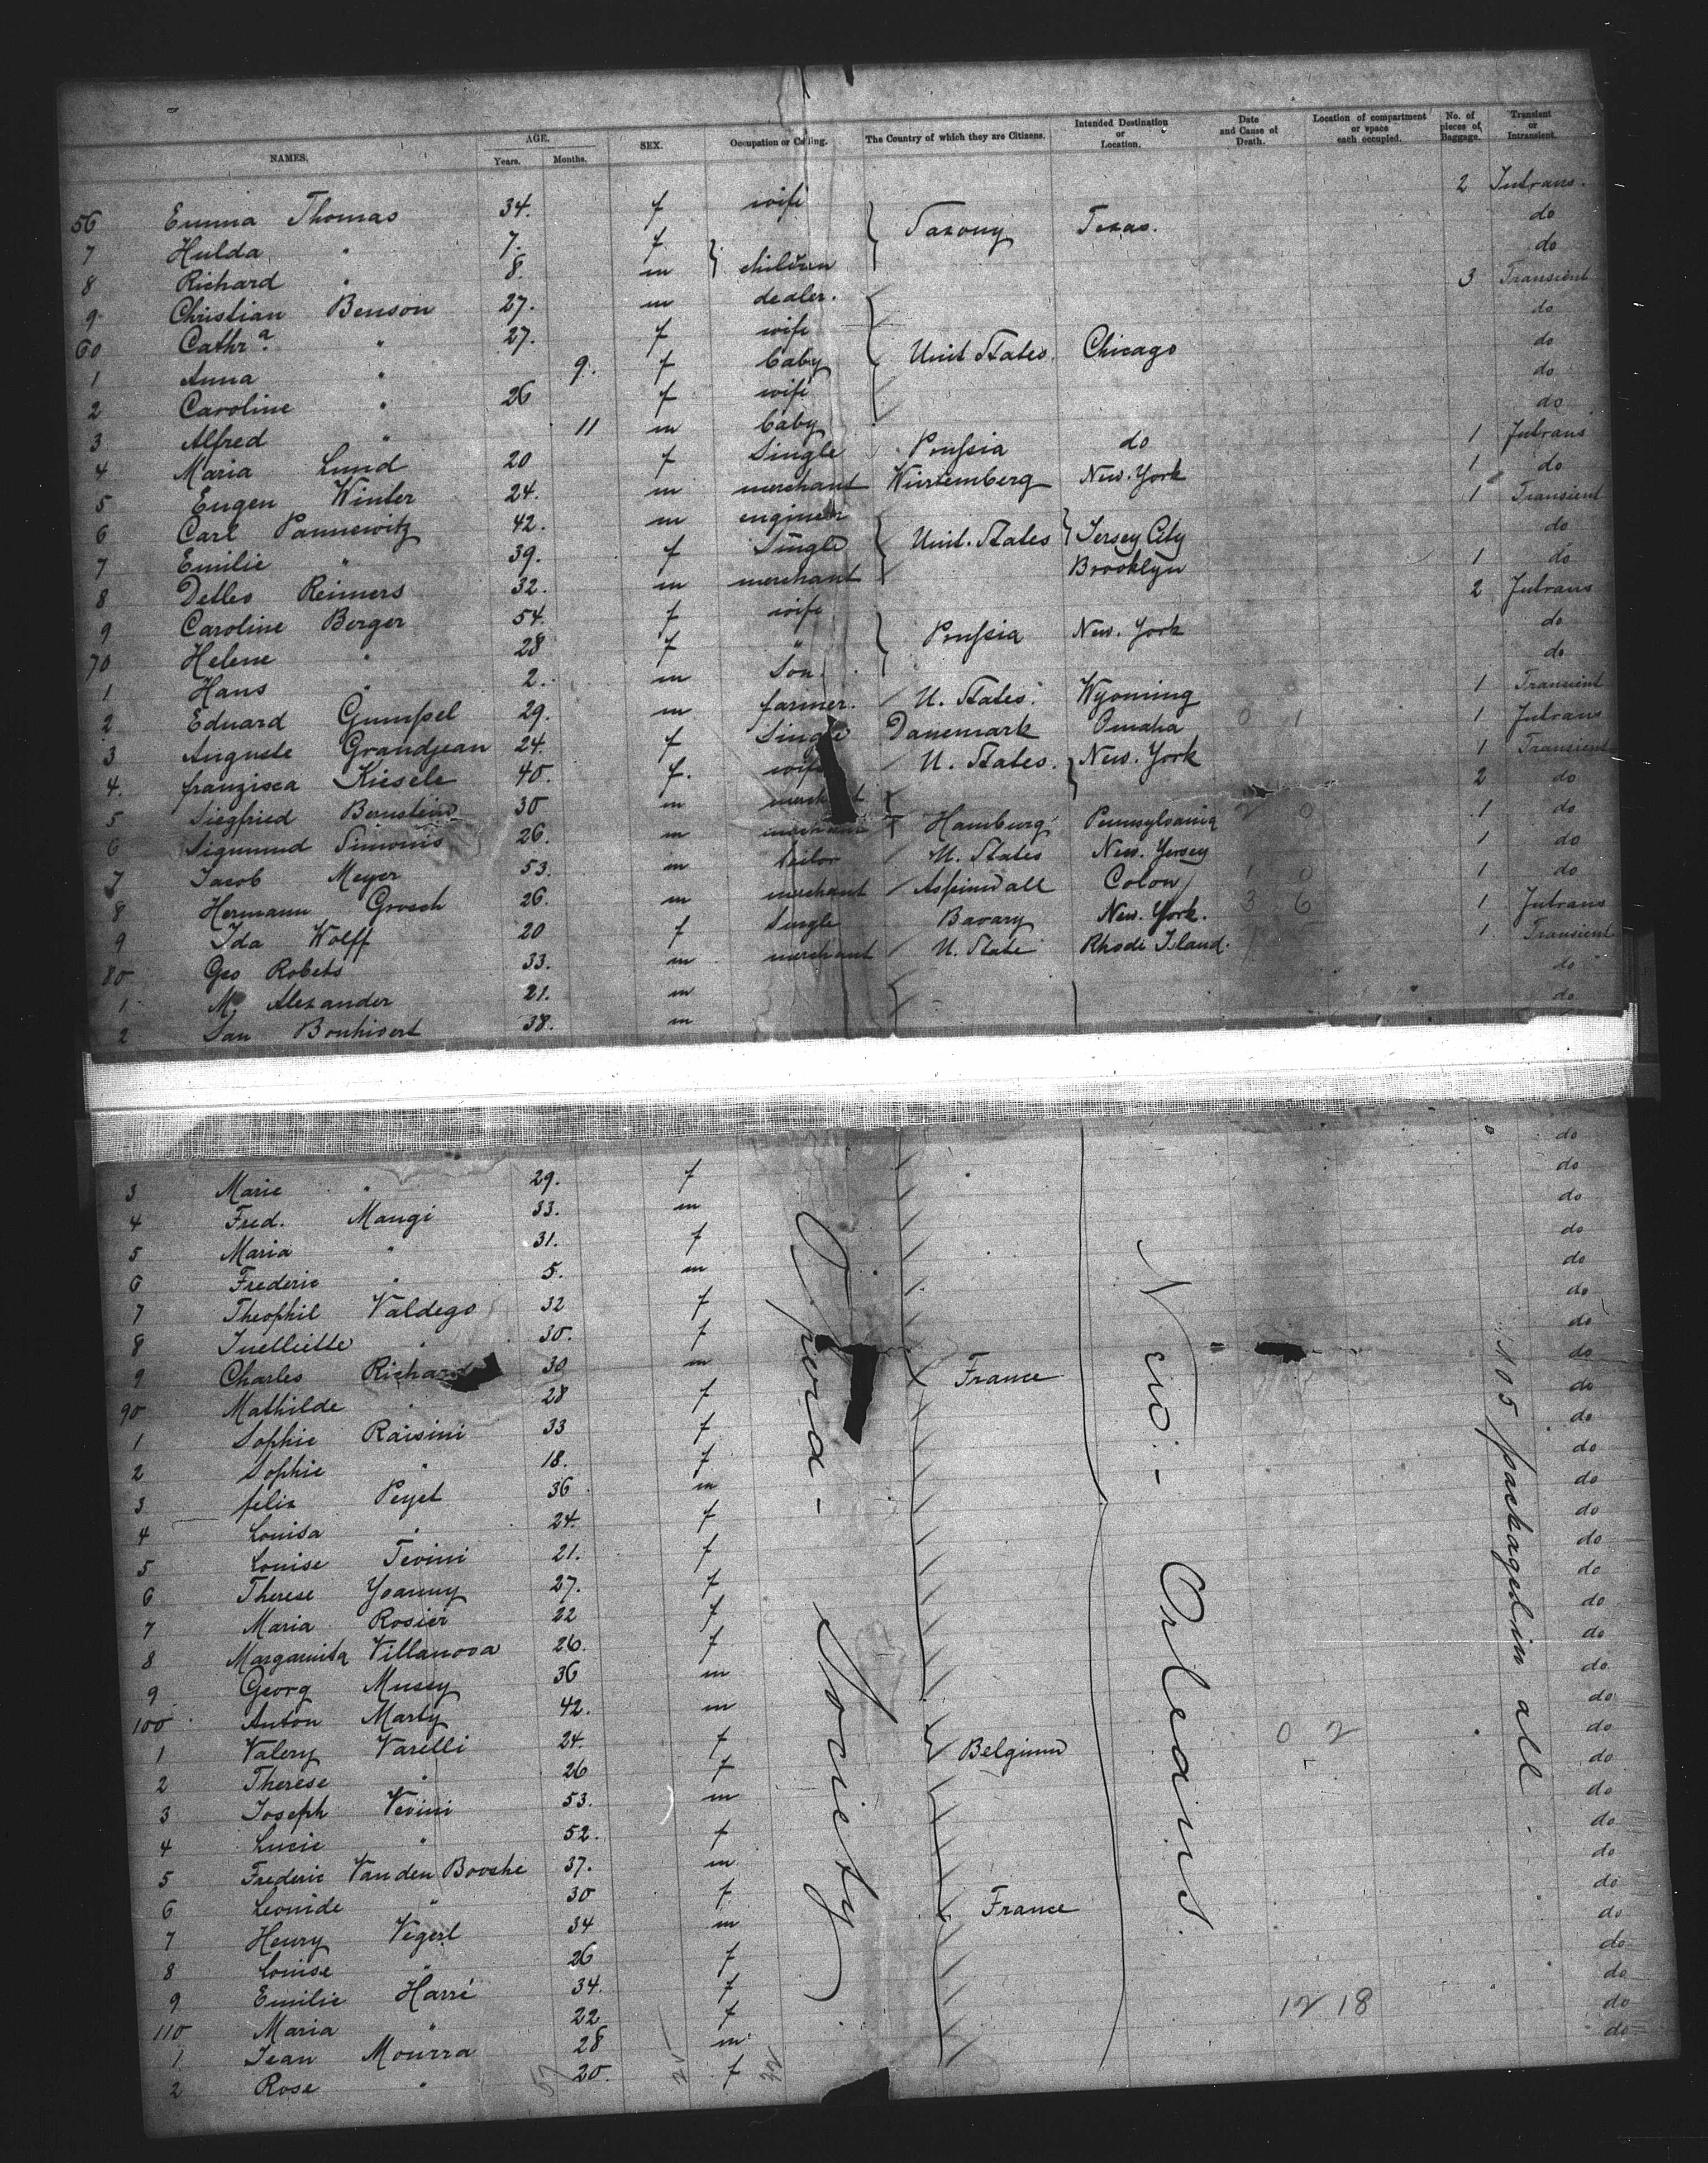 NAMES. AGE. Years. Months. SEX. Occupation or Calling. The Country of which they are Citizens. Intended Destination or Location. Date and Cause of Death. Location of compartment or space each occupied. No. of pieces of Baggage. Transient or Intransient.
56 Emma Thomas 34. f wife Saxony Texas. 2 Intrans.
7 Hulda " 7. f children do
8 Richard " 8. m do
9 Christian Benson 27. m dealer. 3 Transient
60 Cathra " 27. f wife Unit States. Chicago do
1 Anna " 9. f baby do
2 Caroline " 26 f wife do
3 Alfred " 11 m baby do
4 Maria Lund 20 f Single Prussia do 1 Intrans
5 Eugen Winter 24. m merchant Würtemberg New. York 1 do
6 Carl Pannewitz 42. m engineer Unit. States Jersey City 1 Transient
7 Emilie " 39. f Single do
8 Detlev Reimers 32. m merchant Brooklyn 1 do
9 Caroline Berger 54. f wife Prussia New. York 2 Intrans
70 Helene " 28 f " do
1 Hans " 2. m Son. do
2 Eduard Gumpel 29. m farmer. U. States. Wyoming 1 Transient
3 Auguste Grandjean 24. f Single Danemark Omaha 0 1 1 Intrans
4. franzisca Kiesele 40. f. wife U. States. New. York 1 Transient
5 Siegfried Bernstein 30 m merchant 2 do
6 Sigmund Simonis 26. m merchant Hamburg Pennsylvania 2 0 1 do
7 Jacob Meyer 53. m tailor U. States New. Yersey 1 do
8 Hermann Grosch 26. m merchant Aspinwall Colon 1 0 1 do
9 Ida Wolff 20 f Single Bavary New. York. 3 6 1 Intrans
80 Geo Robets 33. m merchant U. State Rhode Island. 1 Transient
1 M. Alexander 21. m do
2 San Bonhivert 38. m do
do
3 Marie " 29. f do
4 Fred. Mangi 33. m do
5 Maria " 31. f do
6 Frederic " 5. m do
7 Theophil Valdego 32 f do
8 Juelliette " 30. f do
9 Charles Richard 30 m France do
90 Mathilde " 28 f do
1 Sophie Raisini 33 f do
2 Sophie " 18. f do
3 felix Peyet 36 m do
4 Louisa " 24. f do
5 Louise Tevini 21. f do
6 Therese Yoanny 27. f do
7 Maria Rosier 22 f do
8 Margarita Villanova 26. f do
9 Georg Mussy 36 m do
100 Anton Marty 42. m do
1 Valery Varelli 24. f Belgium 0 2 do
2 Therese " 26 f do
3 Joseph Vevini 53. m do
4 Lucie " 52. f do
5 Frederic Van den Booshe 37. m do
6 Leonide " 30 f France do
7 Henry Vigerl 34 m do
8 Louise " 26 f do
9 Emilie Harri 34. f do
110 Maria " 22 f 12 18 do
1 Jean Mourra 28 m do
2 Rose " 20. f
Opera - Society
New - Orleans.
105 packages in all.